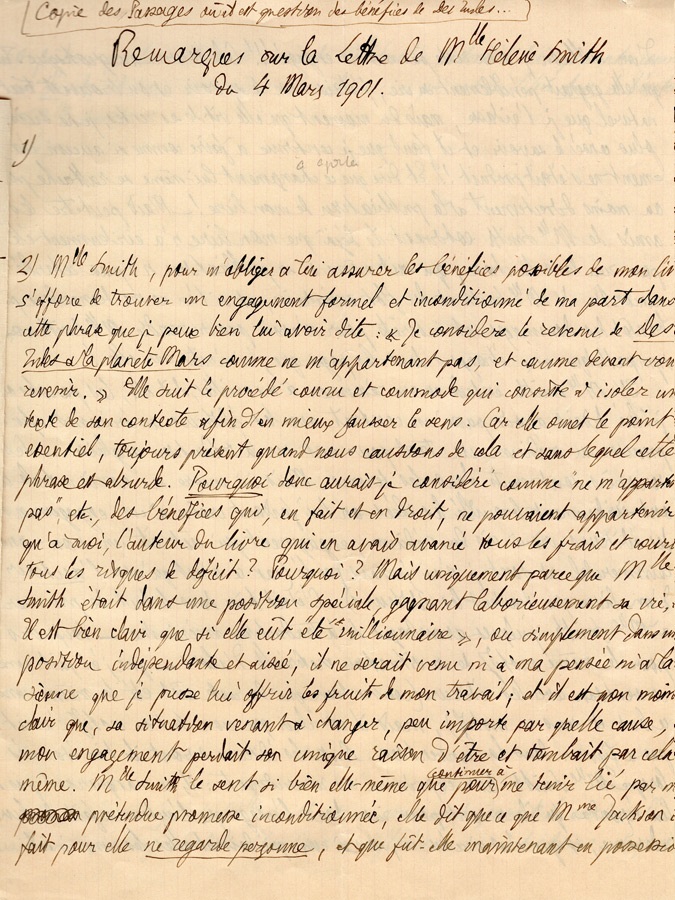 Copie des Passages où il est question des bénéfices de Des Indes...
Remarques sur la Lettre de Mlle Hélène Smith
du 4 Mars 1901.
1)
2) Mlle Smith, pour m'obliger à lui assurer les bénéfices possibles de mon liv
s'efforce de trouver un engagement formel et inconditionné de ma part dans
cette phrase que je peux bien lui avoir dite : « Je considère le revenu de Des
Indes à la planète Mars comme ne m'appartenant pas, et comme devant vous
revenir. » Elle suit le procédé connu et commode qui consiste à isoler un
texte de son contexte afin d'en mieux fausser le sens. Car elle omet le point
essentiel, toujours présent quand nous causions de cela et sans lequel cette
phrase est absurde. Pourquoi donc aurais-je considéré comme "ne m'apparte
pas", etc., des bénéfices qui, en fait et en droit, ne pouvaient appartenir
qu'à moi, l'auteur du livre qui en avais avancé tous les frais et couru
tous les risques de déficit ? Pourquoi ? Mais uniquement parce que Mlle
Smith était dans une position spéciale, gagnant laborieusement sa vie,
Il est bien clair que si elle eût été « millionnaire », ou simplement dans un
position indépendante et aisée, il ne serait venu ni à ma pensée ni à la
sienne que je pusse lui offrir les fruits de mon travail ; et il est non moins
clair que, sa situation venant à changer, peu importe par quelle cause,
mon engagement perdait son unique raison d'être et tombait par cela
même. Mlle Smith le sent si bien elle-même que pour continuer à me tenir lié par m
prétendue promesse inconditionnée, elle dit que ce que Mme Jackson
fait pour elle ne regarde personne, et que fût-elle maintenant en possessio